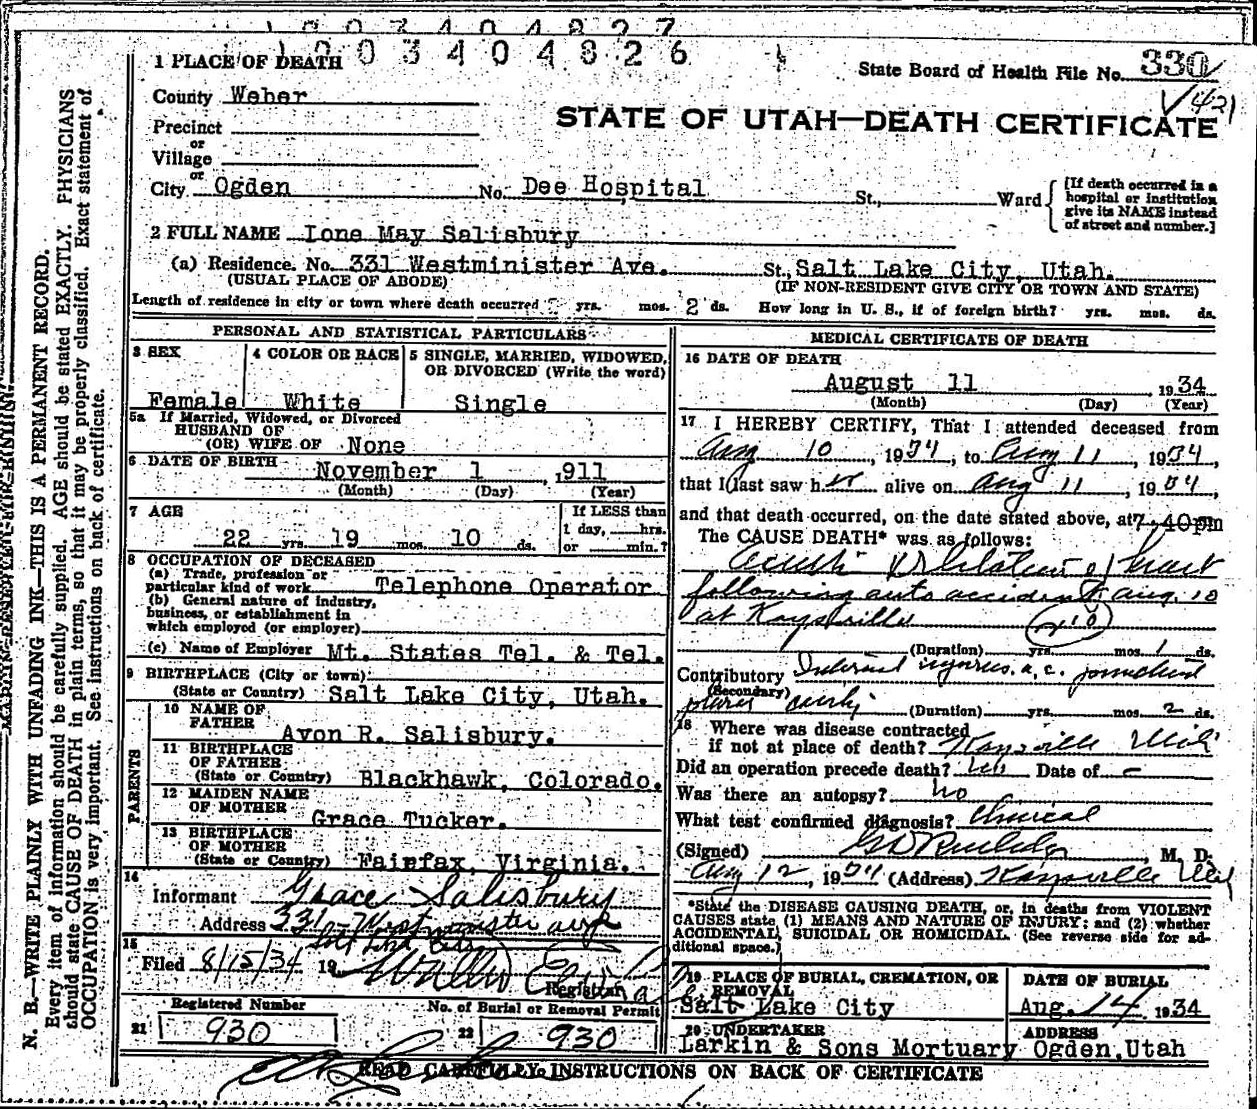 1003404826
1 PLACE OF DEATH
State Board of Health File No. 330
421
County Weber
STATE OF UTAH—DEATH CERTIFICATE
Precinct
or
Village
or
City Ogden No. Dee Hospital St., Ward
[If death occurred in a hospital or institution give its NAME instead of street and number.]
2 FULL NAME Ione May Salisbury
(a) Residence. No. 331 Westminister Ave. St., Salt Lake City, Utah.
(USUAL PLACE OF ABODE) (IF NON-RESIDENT GIVE CITY OR TOWN AND STATE)
Length of residence in city or town where death occurred yrs. mos. 2 ds. How long in U. S., if of foreign birth? yrs. mos. ds.
PERSONAL AND STATISTICAL PARTICULARS
3 SEX
Female
4 COLOR OR RACE
White
5 SINGLE, MARRIED, WIDOWED,
OR DIVORCED (Write the word)
Single
5a If Married, Widowed, or Divorced
HUSBAND OF
(OR) WIFE OF None
6 DATE OF BIRTH
November 1 , 911
(Month) (Day) (Year)
7 AGE
22 yrs. 19 mos. 10 ds.
If LESS than
1 day, hrs.
or min.?
8 OCCUPATION OF DECEASED
(a) Trade, profession or
particular kind of work Telephone Operator
(b) General nature of industry,
business, or establishment in
which employed (or employer)
(c) Name of Employer Mt. States Tel. & Tel.
9 BIRTHPLACE (City or town)
(State or Country) Salt Lake City, Utah.
PARENTS
10 NAME OF
FATHER
Avon R. Salisbury.
11 BIRTHPLACE
OF FATHER
(State or Country) Blackhawk, Colorado.
12 MAIDEN NAME
OF MOTHER
Grace Tucker.
13 BIRTHPLACE
OF MOTHER
(State or Country) Fairfax, Virginia.
14
Informant Grace Salisbury
Address 331 Westminster ave
Salt Lake City
15
Filed 8/15/34 19
Registrar
Registered Number
21 930
No. of Burial or Removal Permit
22 930
MEDICAL CERTIFICATE OF DEATH
16 DATE OF DEATH
August 11 1934
(Month) (Day) (Year)
17 I HEREBY CERTIFY, That I attended deceased from
Aug 10, 1934, to Aug 11, 1934,
that I last saw her alive on Aug 11, 1934,
and that death occurred, on the date stated above, at 7.40pm
The CAUSE DEATH* was as follows:
Dilatation of heart
following auto accident Aug. 10
at Kaysville
210
(Duration) yrs. mos. 1 ds.
Contributory Internal injuries
(Secondary)
(Duration) yrs. mos. 2 ds.
18 Where was disease contracted
if not at place of death? Kaysville Utah
Did an operation precede death? No Date of –
Was there an autopsy? No
What test confirmed diagnosis? Clinical
(Signed) M. D.
Aug 12, 1934 (Address) Kaysville Utah
*State the DISEASE CAUSING DEATH, or, in deaths from VIOLENT
CAUSES state (1) MEANS AND NATURE OF INJURY; and (2) whether
ACCIDENTAL, SUICIDAL OR HOMICIDAL. (See reverse side for ad-
ditional space.)
19 PLACE OF BURIAL, CREMATION, OR
REMOVAL
Salt Lake City
DATE OF BURIAL
Aug. 14 1934
20 UNDERTAKER
Larkin & Sons Mortuary
ADDRESS
Ogden, Utah
READ CAREFULLY INSTRUCTIONS ON BACK OF CERTIFICATE
N. B.—WRITE PLAINLY WITH UNFADING INK—THIS IS A PERMANENT RECORD.
Every item of information should be carefully supplied. AGE should be stated EXACTLY. PHYSICIANS
should state CAUSE OF DEATH in plain terms, so that it may be properly classified. Exact statement of
OCCUPATION is very important. See instructions on back of certificate.